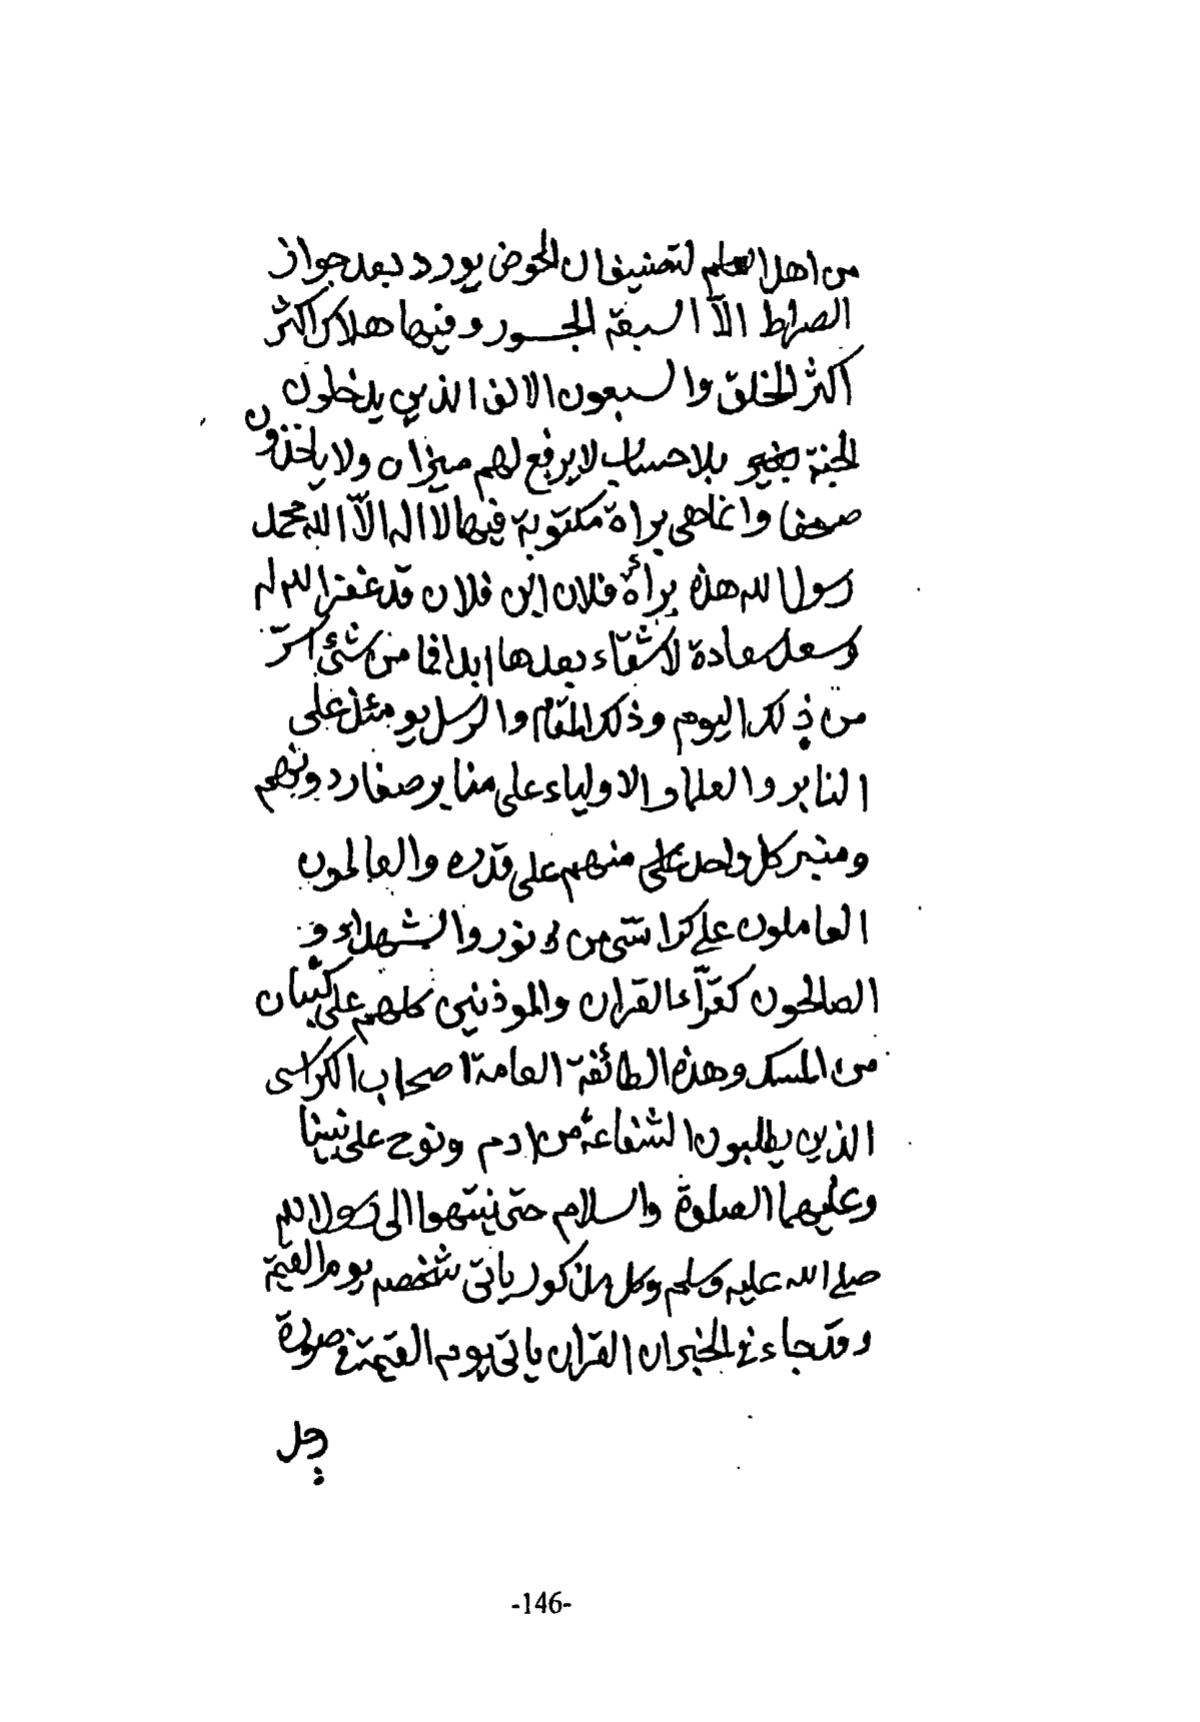 من اهل العلم لتصنيف ان الحوض يورد بعد جواز
الصراط الآ السبقة الجسور وفيها هلاك اكثر
اكثر الخلق والسبعون الالف الذين يدخلون
الجنة بغير بلاحساب لا يرفع لهم ميزان ولا ياخذون
صحفا وانما هى براة مكتوبة فيها لا اله الآ الله محمد
رسول الله هذه برأة فلان ابن فلان قد غفر الله له
وسعد سعادة لا شقاء بعدها ابدا فما من شئ اسرّ
من ذلك اليوم وذلك المقام والرسل يومئذ على
النابر والعلما والاولياء على منابر صغار دونهم
ومنبر كل واحد على منهم على قدره والعالمون
العاملون على كراسى من نور والشهداء و
الصالحون كقرّآء القران والموذنين كلهم على كثبان
من المسك وهذه الطائفة العامة اصحاب الكراسى
الذين يطلبون الشفاعة من ادم ونوح على نبينا
وعليهما الصلوة والسلام حتى ينتهوا الى رسول الله
صلى الله عليه وسلم وكل مذكور ياتى شخصه يوم القيمة
وقد جاء فى الخبر ان القران ياتى يوم القيمة فى صورة
رجل
-146-